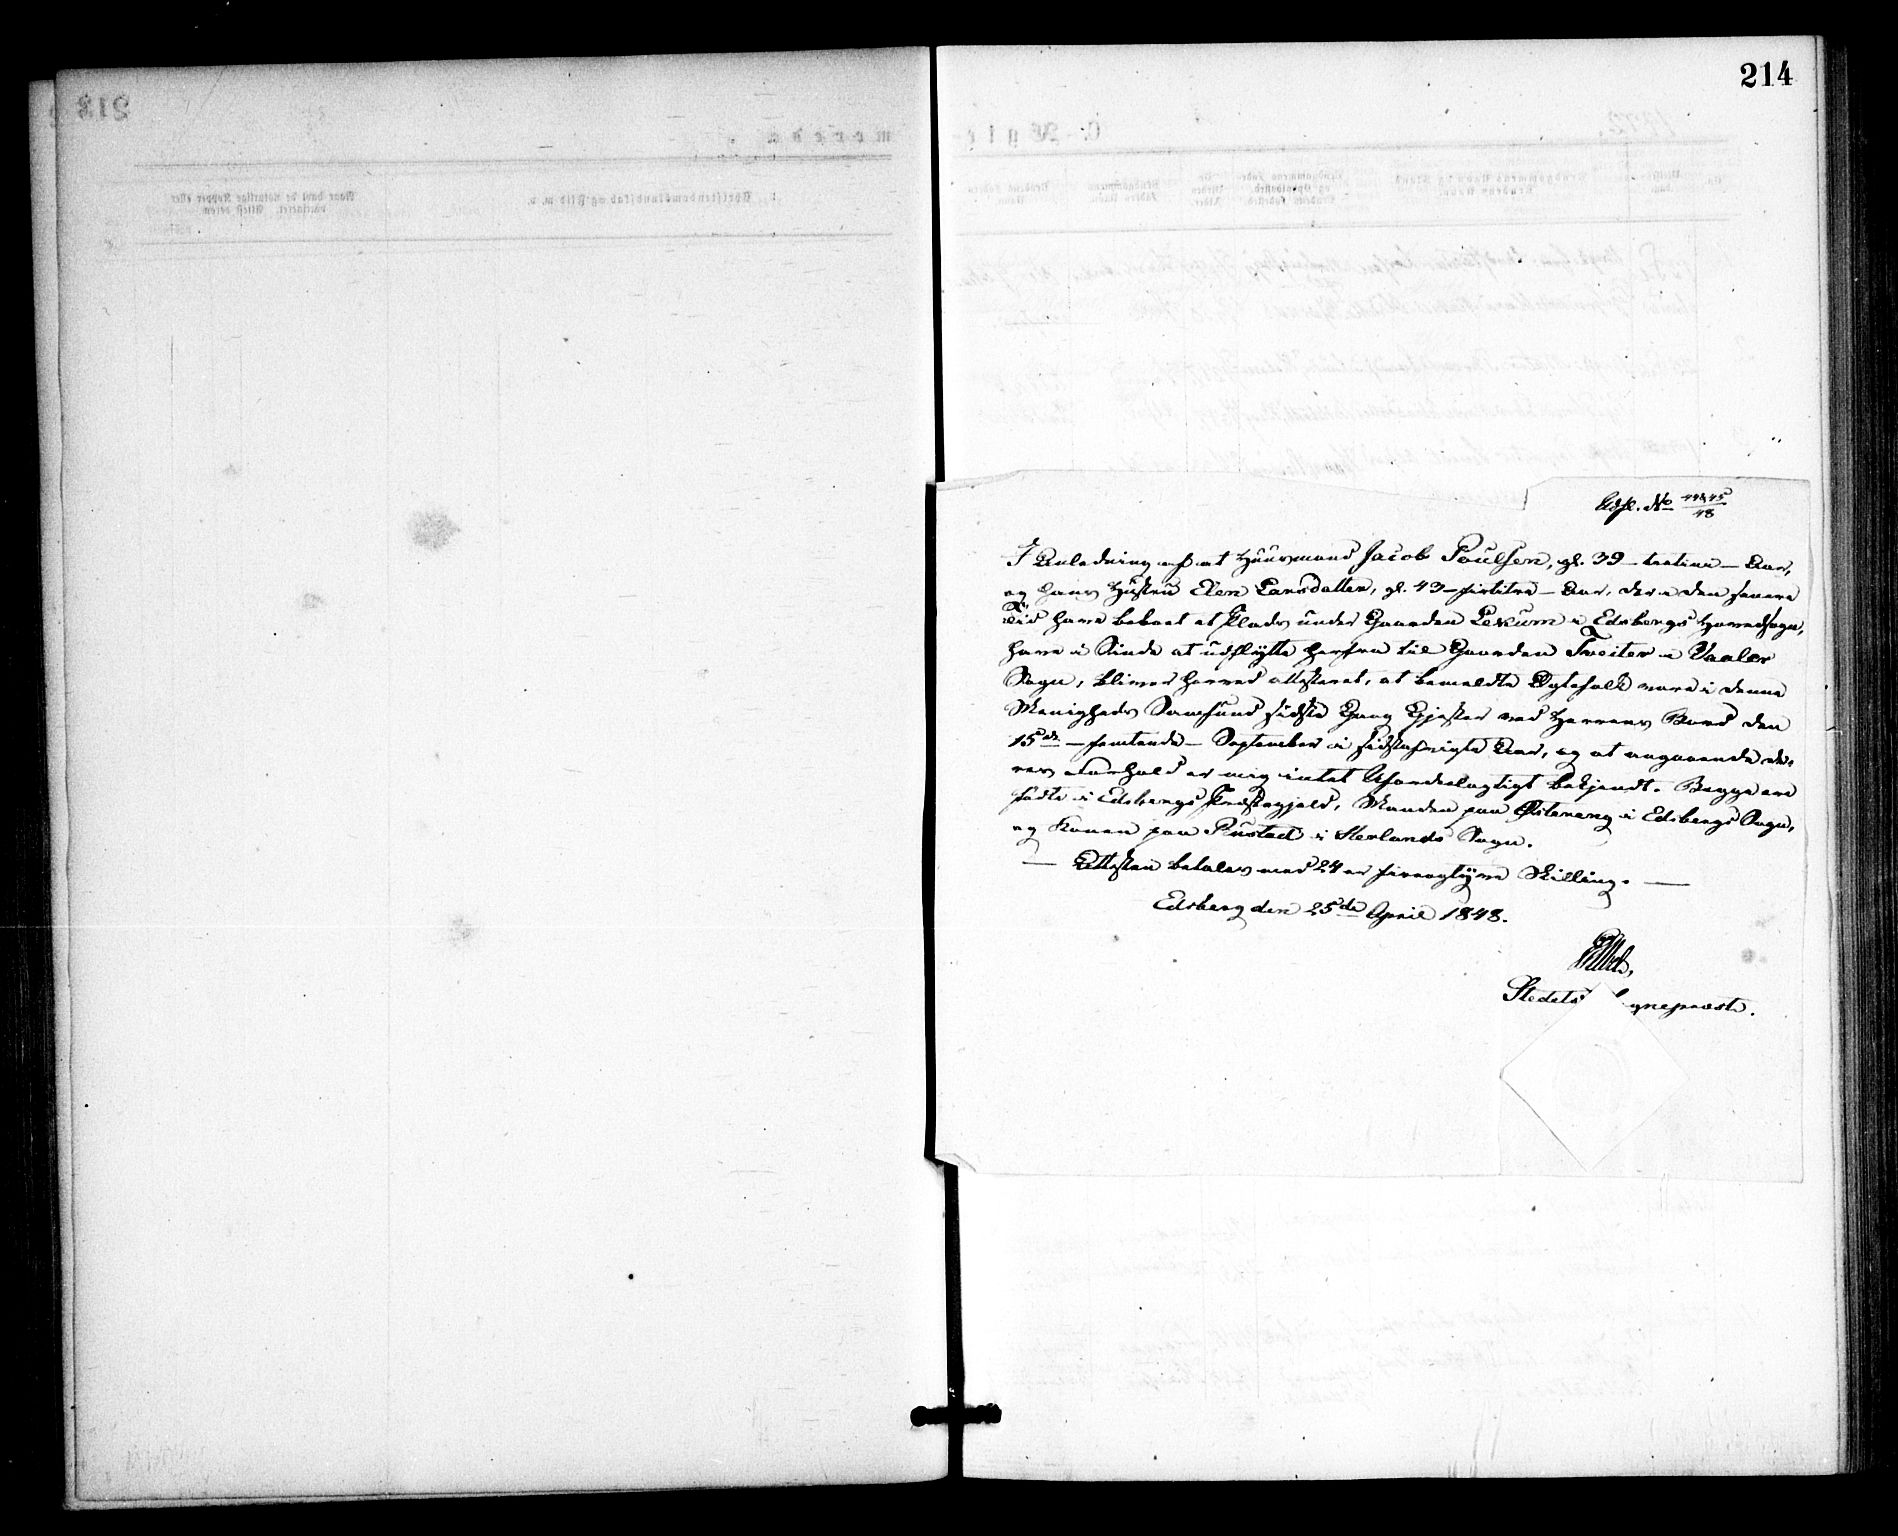 214
Udfl. No 44&45/48
I Anledning af at Huusmand Jacob Poulsen, gl. 39 – tretini – Aar,
og hans Hüstrü Elen Larsdatter, gl. 43 – firtitre – Aar, der i den senere
Tid have beboet et Plads ünder Gaarden Lekum i Edsbergs Hovedsogn,
have i Sinde at üdflÿtte herfra til Gaarden Tveiter i Vaaler
Sogn, bliver herved attesteret, at bemeldte Ægtefolk vare i denne
Menigheds Samfünd sidste Gang Gjester ved Herrens Bord den
15de – femtende – September i sidstafvigte Aar, og at angaaende de-
res Forhold er mig intet Ufordeelagtigt bekjendt. Begge ere
fødte i Edsbergs Præstegjeld, Manden paa Østereng i Edsbergs Sogn,
og Konen paa Rüstad i Herlands Sogn.
— Attesten betales med 24 er fireogtÿve Skilling. —
Edsberg den 25de April 1848.
Stedets gnepræst.